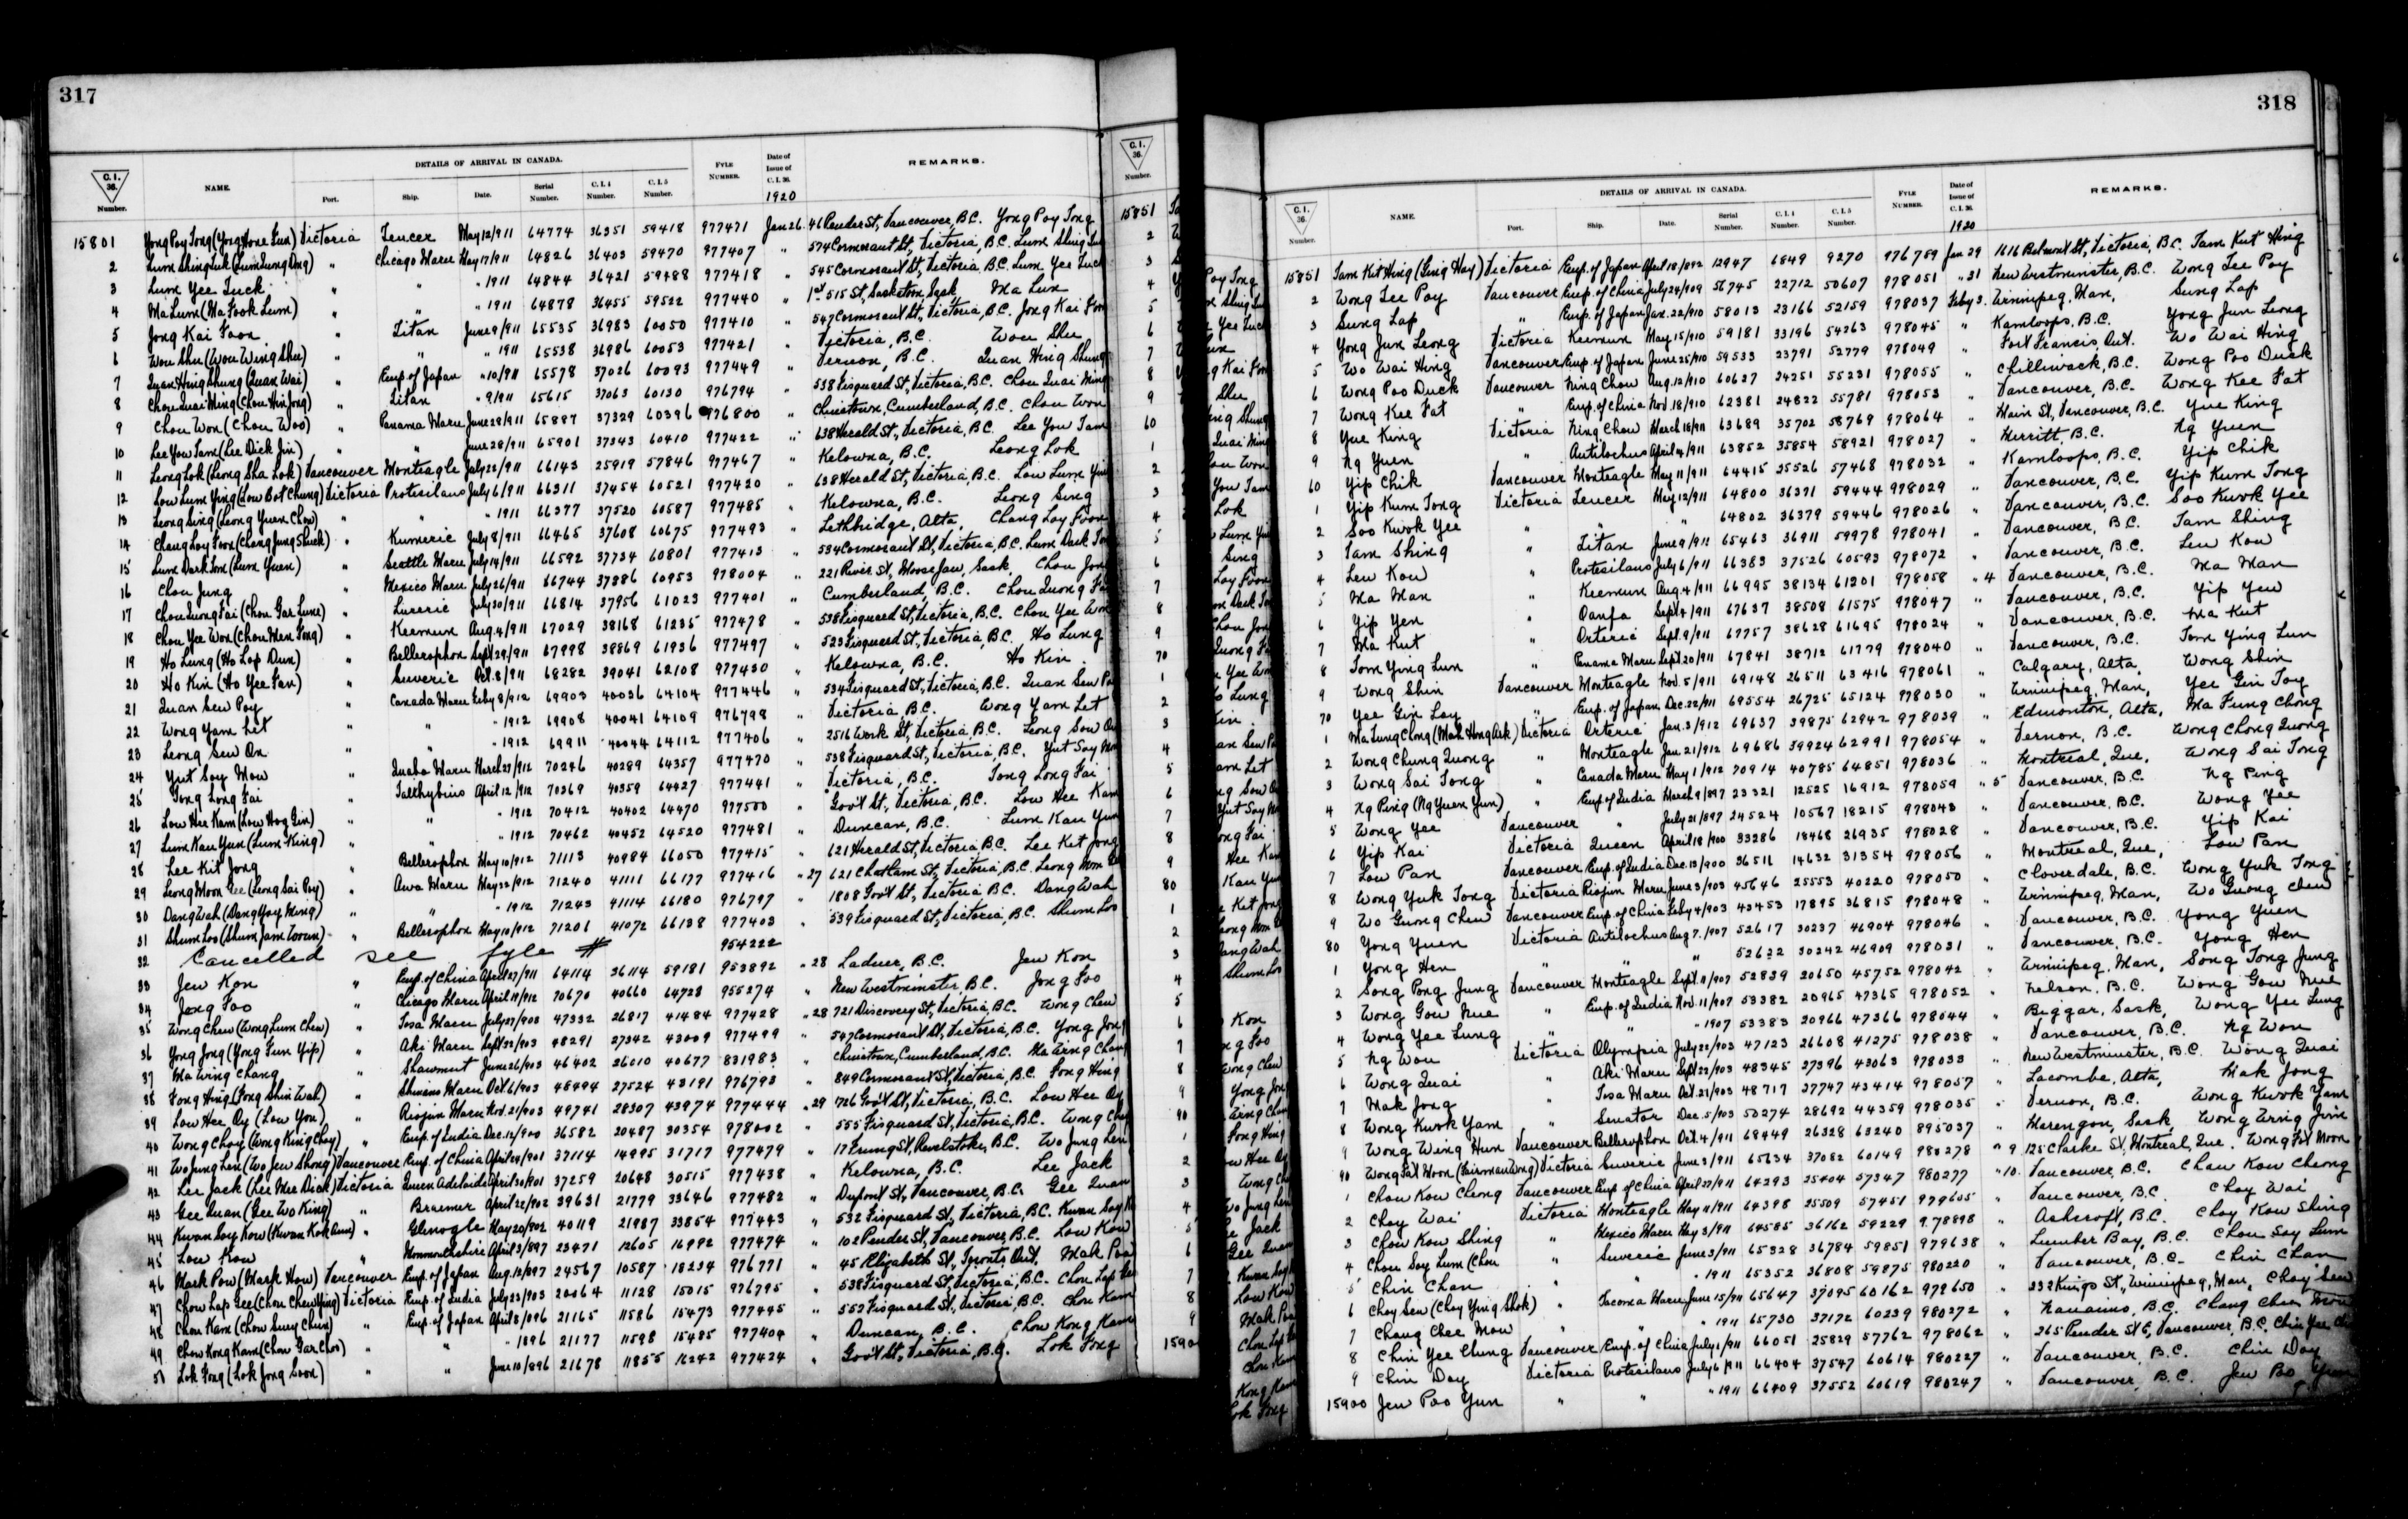 317
DETAILS OF ARRIVAL IN CANADA.
C. I. 36. Number. NAME. Port. Ship. Date. Serial Number. C. I. 4 Number. C. I. 5 Number. FYLE NUMBER. Date of Issue of C. I. 36. REMARKS.
1920
15801 Yong Poy Tong Victoria Teucer May 12/911 64774 36351 59418 977471 Jan 26 46 Pender St, Vancouver, B.C. Yong Poy Tong
2 " Chicago Maru May 17/911 64826 36403 59470 977407 " 574 Cormorant St., Victoria, B.C.
3 Lum Yee Luck " " " 1911 64844 36421 59488 977418 " 545 Cormorant St, Victoria, B.C. Lum Yee Luck
4 Ma Lum (Ma Fook Lum) " " " 1911 64878 36455 59522 977440 " 515 St, Saskatoon, Sask. Ma Lum
5 Jong Kai Foon " Titan June 9/911 65535 36983 60050 977410 " 547 Cormorant St, Victoria, B.C. Jong Kai Foon
6 Wou Shu (Wou Wing Shu) " " " 1911 65538 36986 60053 977421 " Victoria, B.C. Wou Shu
7 Quan Hing Shung (Quan Wai) " Emp. of Japan " 10/911 65578 37026 60093 977449 " Vernon, B.C. Quan Hing Shung
8 Chou Quai Ming " Titan " 9/911 65615 37063 60130 976794 " 538 Fisguard St, Victoria, B.C. Chou Quai Ming
9 Chou Won (Chou Woo) " Panama Maru June 28/911 65887 37329 60396 976800 " Chinatown, Cumberland, B.C. Chou Won
10 Lee You Tam (Lee Dick Jin) " " June 28/911 65901 37343 60410 977422 " 638 Herald St., Victoria, B.C. Lee You Tam
11 Leong Lok (Leong Sha Lok) Vancouver Monteagle July 22/911 66143 25919 57846 977467 " Kelowna, B.C. Leong Lok
12 Low Lum Ying (Low Bot Chung) Victoria Protesilaus July 6/911 66311 37454 60521 977420 " 638 Herald St, Victoria, B.C. Low Lum Ying
13 Leong Sing (Leong Yuen Chow) " " " 1911 66377 37520 60587 977485 " Kelowna, B.C. Leong Sing
14 Chang Loy Foon (Chang Jung Shuck) " Kumeric July 8/911 66465 37608 60675 977493 " Lethbridge, Alta, Chang Loy Foon
15 Lum Dark Tom (Lum Yuen) " Seattle Maru July 14/911 66592 37734 60801 977413 " 534 Cormorant St, Victoria, B.C.
16 Chou Jung " Mexico Maru July 26/911 66744 37886 60953 978004 " 221 River St, Moose Jaw, Sask,
17 " Luceric July 30/911 66814 37956 61023 977401 " Cumberland, B.C.
18 Chou Yee Won " Keemun Aug. 4/911 67029 38168 61235 977478 " 538 Fisguard St, Victoria, B.C. Chou Yee Won
19 Ho Lung (Ho Lap Dun) " Bellerophon Sept 29/911 67998 38869 61936 977497 " 523 Fisguard St, Victoria, B.C. Ho Lung
20 Ho Kin (Ho Yee Fan) " Suveric Oct. 8/911 68282 39041 62108 977430 " Kelowna, B.C. Ho Kin
21 Quan Sew Poy " Canada Maru Feby 8/912 69903 40036 64104 977446 " 534 Fisguard St, Victoria, B.C.
22 Wong Yam Let " " " 1912 69908 40041 64109 976798 " Victoria, B.C. Wong Yam Let
23 Leong Sew On " " " 1912 69911 40044 64112 977406 " 2516 Work St, Victoria, B.C. Leong Sow On
24 Yut Soy Mow " Inaba Maru March 27/912 70246 40289 64357 977470 " 538 Fisguard St, Victoria, B.C. Yut Soy Mow
25 Tong Long Fai " Talthybius April 12/912 70369 40359 64427 977441 " Victoria, B.C. Tong Long Fai
26 Low Hee Kam (Low Hog Gin) " " " 1912 70412 40402 64470 977500 " Gov't St, Victoria, B.C. Low Hee Kam
27 Lum Kau Yun (Lum King) " " " 1912 70462 40452 64520 977481 " Duncan, B.C. Lum Kau Yun
28 Lee Kit Jong " Bellerophon May 10/912 71113 40984 66050 977415 " 621 Herald St, Victoria, B.C. Lee Kit Jong
29 Leong Moon Gee (Leong Sai Poy) " Awa Maru May 22/912 71240 41111 66177 977416 " 27 621 Chatham St, Victoria, B.C.
30 Dang Wah (Dang Yoy Ming) " " " 1912 71243 41114 66180 976797 " 1808 Gov't St, Victoria, B.C. Dang Wah
31 Shum Loo " Bellerophon May 10/912 71201 41072 66138 977403 " 539 Fisguard St, Victoria, B.C. Shum Loo
32 Cancelled see fyle # 954222
33 Jew Kon " Emp. of China April 27/911 64114 36114 59181 953892 " 28 Ladner, B.C. Jew Kon
34 Jong Foo " Chicago Maru April 19/912 70670 40660 64728 955274 " New Westminster, B.C. Jong Foo
35 Wong Chew (Wong Lum Chew) " Tosa Maru July 27/903 47332 26817 41484 977428 " 28 721 Discovery St, Victoria, B.C. Wong Chew
36 Yong Jong (Yong Fun Yip) " Aki Maru Sept 22/903 48291 27342 43009 977499 " 547 Cormorant St, Victoria, B.C. Yong Jong
37 Ma Wing Chang " Shawmut June 26/903 46402 26010 40677 831983 " Chinatown, Cumberland, B.C. Ma Wing Chang
38 Fong Hing (Fong Shin Wah) " Shinano Maru Oct 6/903 48494 27524 43191 976793 " 849 Cormorant St, Victoria, B.C. Fong Hing
39 Low Hee Oy (Low Yon) " Riojun Maru Nov. 21/903 49741 28307 43974 977444 " 29 1726 Gov't St, Victoria, B.C. Low Hee Oy
40 Wong Choy (Wong King Choy) " Emp. of India Dec. 12/900 36582 20487 30354 978002 " 555 Fisguard St, Victoria, B.C.
41 Wo Jung Len (Wo Jew Shong) Vancouver Emp. of China April 24/901 37114 14995 31717 977479 " Revelstoke, B.C. Wo Jung Len
42 Lee Jack (Lee Mee Dick) Victoria Queen Adelaide April 30/901 37259 20648 30515 977438 " Kelowna, B.C. Lee Jack
43 Gee Quan (Gee Wo King) " Braemer April 22/902 39631 21779 33646 977482 " Dupont St, Vancouver, B.C. Gee Quan
44 " Glenogle May 20/902 40119 21987 33854 977443 " 532 Fisguard St, Victoria, B.C.
45 Low Kow " Monmouthshire April 3/897 23471 12605 16992 977474 " 102 Pender St, Vancouver, B.C. Low Kow
46 Mark Pow (Mark How) Vancouver Emp. of Japan Aug. 12/897 24567 10587 18234 976771 " 45 Elizabeth St, Toronto, Ont. Mak Poo
47 Chow Lap Gee Victoria Emp. of India July 23/903 20464 11128 15015 976795 " 538 Fisguard St, Victoria, B.C.
48 Chou Kam " Emp. of Japan April 8/896 21165 11586 15473 977445 " 552 Fisguard St, Victoria, B.C. Chou Kam
49 Chow Kong Kam (Chou Gar Choo) " " " 1896 21177 11598 15485 977404 " Duncan, B.C. Chow Kong Kam
50 Lok Fong (Lok Jong Soon) " " June 10/896 21678 11855 16242 977424 " Gov't St, Victoria, B.C. Lok Fong
318
DETAILS OF ARRIVAL IN CANADA.
C. I. 36. Number. NAME. Port. Ship. Date. Serial Number. C. I. 4 Number. C. I. 5 Number. FYLE NUMBER. Date of Issue of C. I. 36. REMARKS.
1920
15851 Tam Kit Hing (Ging Hoy) Victoria Emp. of Japan April 18/892 12947 6849 9270 976759 Jan 29 1616 Belmont St, Victoria, B.C. Tam Kut Hing
2 Wong Lee Poy Vancouver Emp. of China July 24/909 56745 22712 50607 978051 " 31 New Westminster, B.C. Wong Lee Poy
3 Sung Lap " Emp. of Japan Jan. 22/910 58013 23166 52159 978037 Feby 3. Winnipeg, Man, Sung Lap
4 Yong Jun Leong Victoria Keemun May 15/910 59181 33196 54263 978045 " Kamloops, B.C. Yong Jun Leong
5 Wo Wai Hing Vancouver Emp. of Japan June 25/910 59533 23791 52779 978049 " Fort Francis, Ont. Wo Wai Hing
6 Wong Poo Duck Vancouver Ning Chow Aug. 12/910 60627 24251 55231 978055 " Chilliwack, B.C. Wong Poo Duck
7 Wong Kee Fat " Emp. of China Nov. 18/910 62381 24822 55781 978053 " Vancouver, B.C. Wong Kee Fat
8 Yue King Victoria Ning Chow March 18/911 63689 35702 58769 978064 " Main St, Vancouver, B.C. Yue King
9 Ng Yuen " Antilochus April 4/911 63852 35854 58921 978027 " Merritt, B.C. Ng Yuen
60 Yip Chik Vancouver Monteagle May 11/911 64415 25526 57468 978032 " Kamloops, B.C. Yip Chik
1 Yip Kum Tong Victoria Teucer May 12/911 64800 36371 59444 978029 " Vancouver, B.C. Yip Kum Tong
2 Soo Kwok Yee " " " 64802 36379 59446 978026 " Vancouver, B.C. Soo Kwok Yee
3 Tam Shing " Titan June 9/911 65463 36911 59978 978041 " Vancouver, B.C. Tam Shing
4 Lew Kow " Protesilaus July 6/911 66383 37526 60593 978072 " Vancouver, B.C. Lew Kow
5 Ma Man " Keemun Aug. 4/911 66995 38134 61201 978058 " 4 Vancouver, B.C. Ma Man
6 Yip Yen " Oanfa Sept 4/911 67637 38508 61575 978047 " Vancouver, B.C. Yip Yew
7 Ma Kut " Orteric Sept. 9/911 67757 38628 61695 978024 " Vancouver, B.C. Ma Kut
8 Tom Ying Lun " Panama Maru Sept. 20/911 67841 38712 61779 978040 " Vancouver, B.C. Tom Ying Lun
9 Wong Shin Vancouver Monteagle Nov. 5/911 69148 26511 63416 978061 " Calgary, Alta, Wong Shin
70 Yee Gin Loy " Emp. of Japan Dec. 22/911 69554 26725 65124 978030 " Winnipeg, Man, Yee Gin Toy
1 Ma Lung Chong (Mah Hong Ark) Victoria Orteric Jan. 3/912 69637 39875 62942 978039 " Edmonton, Alta, Ma Fung Chong
2 Wong Chung Quong " Monteagle Jan. 21/912 69686 39924 62991 978054 " Vernon, B.C. Wong Chong Quong
3 Wong Sai Tong " Canada Maru May 1/912 70914 40785 64851 978036 " Montreal, Que, Wong Sai Tong
4 Ng Ping (Ng Yuen Yun) " Emp. of India March 9/897 23321 12525 16912 978059 " 5 Vancouver, B.C. Ng Ping
5 Wong Yee Vancouver " July 21/897 24524 10567 18215 978043 " Vancouver, B.C. Wong Yee
6 Yip Kai Victoria Queen April 18/900 33286 18468 26935 978028 " Vancouver, B.C. Yip Kai
7 Low Pan Vancouver Emp. of India Dec. 13/900 36511 14632 31354 978056 " Montreal, Que, Low Pan
8 Wong Yuk Tong Victoria Riojun Maru June 3/903 45646 25553 40220 978050 " Cloverdale, B.C. Wong Yuk Tong
9 Wo Guong Chew Vancouver Emp. of China Feby 4/903 43453 17895 36815 978048 " Winnipeg, Man, Wo Guong Chew
80 Yong Yuen Victoria Antilochus Aug 7./907 52617 30237 46904 978046 " Vancouver, B.C. Yong Yuen
1 Yong Hen " " " 52622 30242 46909 978031 " Vancouver, B.C. Yong Hen
2 Song Pong Jung Vancouver Monteagle Sept. 11/907 52839 20650 45752 978042 " Winnipeg, Man, Song Tong Jung
3 Wong Gow Mue " Emp. of India Nov. 11/907 53382 20965 47365 978052 " Nelson, B.C. Wong Gow Mue
4 Wong Yee Lung " " " 1907 53383 20966 47366 978044 " Biggar, Sask, Wong Yee Lung
5 Ng Won Victoria Olympia July 22/903 47123 26608 41275 978038 " Vancouver, B.C. Ng Won
6 Wong Quai " Aki Maru Sept. 22/903 48345 27396 43063 978033 " New Westminster, B.C. Wong Quai
7 Mak Jong " Tosa Maru Oct. 21/903 48717 27747 43414 978057 " Lacombe, Alta, Mak Jong
8 Wong Kwok Yam " Senator Dec. 5/903 50274 28692 44359 978035 " Vernon, B.C. Wong Kwok Yam
9 Wong Wing Hun Vancouver Bellerophon Oct. 4/911 68449 26328 63240 895037 " Sask,
90 Victoria Suveric June 3/911 65634 37082 60149 980278 " 9 125 Clarke St, Montreal, Que. Wong Fat Moon
1 Chou Kow Cheong Vancouver Emp. of China April 27/911 64293 25404 57347 980277 " 10. Vancouver, B.C. Chow Kow Cheong
2 Choy Wai Victoria Monteagle May 11/911 64398 25509 57451 979605 " Vancouver, B.C. Choy Wai
3 Chou Kow Shing " Mexico Maru May 3/911 64585 36162 59229 978898 " Ashcroft, B.C. Choy Kow Shing
4 Chou Soy Lum (Chou " Suveric June 3/911 65328 36784 59851 979638 " Lumber Bay, B.C. Chou Soy Lum
5 Chin Chan " " " 1911 65352 36808 59875 980220 " Vancouver, B.C. Chin Chan
6 Choy Sew (Choy Ying Shok) " Tacoma Maru June 15/911 65647 37095 60162 979650 " 232 King St, Winnipeg, Man, Choy Sew
7 Chang Chee Mow " " " 1911 65730 37172 60239 980272 " Nanaimo, B.C. Chang Chee Mow
8 Chin Yee Chung Vancouver Emp. of China July 1/911 66051 25829 57762 978062 " 265 Pender St E, Vancouver, B.C.
9 Chin Doy Victoria Protesilaus July 6/911 66404 37547 60614 980227 " Vancouver, B.C. Chin Doy
15900 Jew Poo Yun " " " 1911 66409 37552 60619 980247 " Vancouver, B.C. Jew Bo Yun